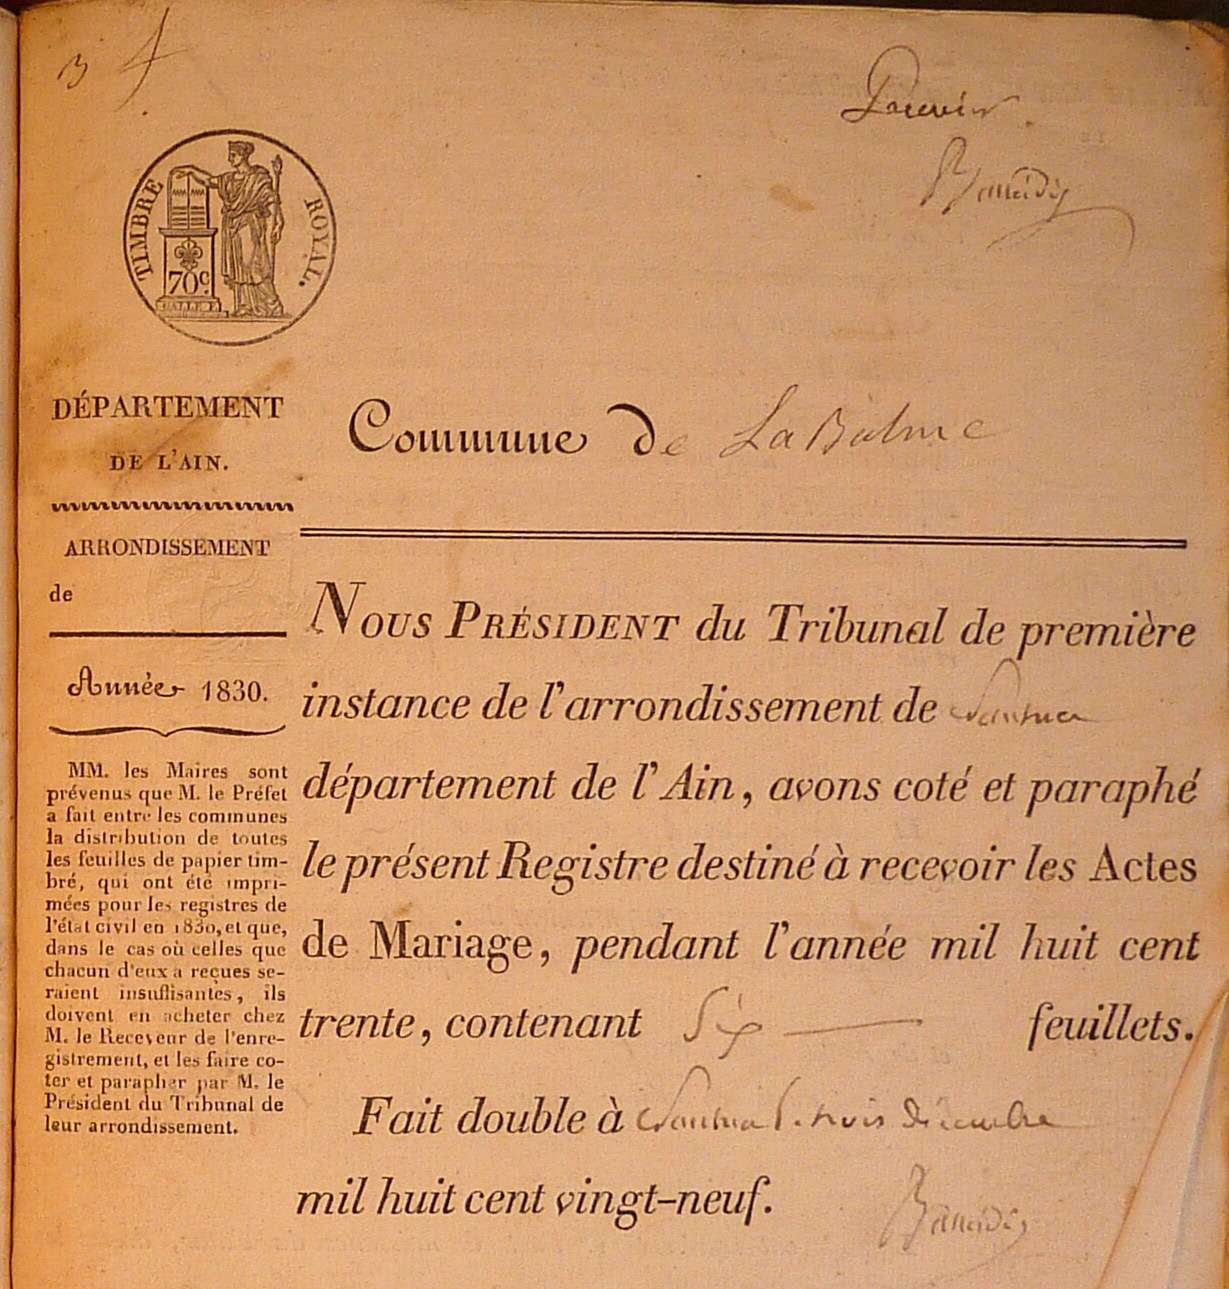 TIMBRE ROYAL.
70c.
DÉPARTEMENT
DE L'AIN.
ARRONDISSEMENT
de
Année 1830.
MM. les Maires sont
prévenus que M. le Préfet
a fait entre les communes
la distribution de toutes
les feuilles de papier tim-
bré, qui ont été impri-
mées pour les registres de
l'état civil en 1830, et que,
dans le cas où celles que
chacun d'eux a reçues se-
raient insuffisantes, ils
doivent en acheter chez
M. le Receveur de l'enre-
gistrement, et les faire co-
ter et parapher par M. le
Président du Tribunal de
leur arrondissement.
Commune de La Balme
NOUS PRÉSIDENT du Tribunal de première
instance de l'arrondissement de Nantua
département de l'Ain, avons coté et paraphé
le présent Registre destiné à recevoir les Actes
de Mariage, pendant l'année mil huit cent
trente, contenant Six feuillets.
Fait double à Nantua le trois décembre
mil huit cent vingt-neuf.